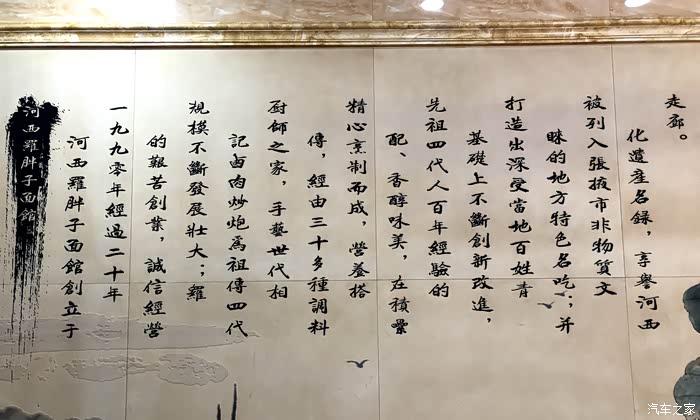 河西羅胖子面館
河西羅胖子面館創立于
一九九零年經過二十年
的艱苦創業，誠信經營
規模不斷發展壯大；羅
記卤肉炒炮爲祖傳四代
厨師之家，手藝世代相
傳，經由三十多種調料
精心烹制而成，營養搭
配、香醇味美，在積纍
先祖四代人百年經驗的
基礎上不斷創新改進，
打造出深受當地百姓青
睐的地方特色名吃；并
被列入張掖市非物質文
化遺産名録，享譽河西
走廊。
汽车之家